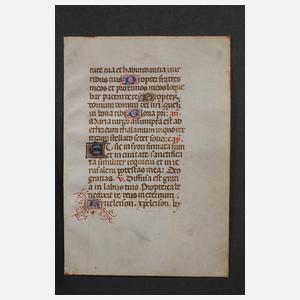 rute tua et habundantia in tur
ribus tuis Propter fratres
meos et proximos meos loque
bar pacem de te Propter
domum domini dei nri quesi
ui bona tibi Gloria pri an
Maria virgo assumpta est ad
ethereum thalamum in quo rex
regum stellato sedet solio cap
Et sic in syon firmata sum
et in ciuitate sanctifica
ta similiter requieui et in ie
rusalem potestas mea Deo
gratias v Diffusa est grati
a in labiis tuis Propterea be
nedixit te deus in eternum
Kyrieleison xpeleison ky